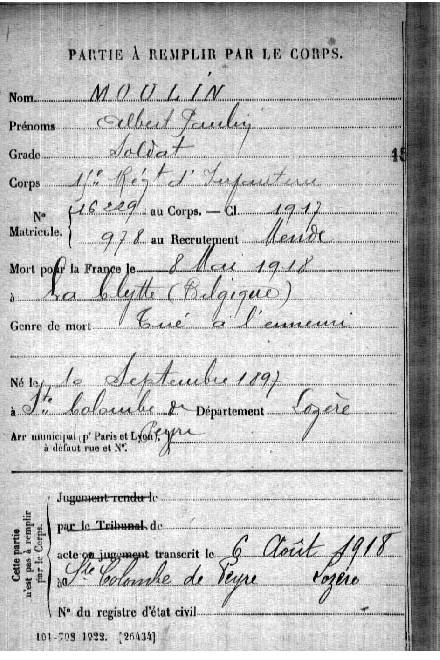 PARTIE À REMPLIR PAR LE CORPS.
Nom MOULIN
Prénoms Albert Paulin
Grade Soldat
15
Corps Régt d'Infanterie
N° Matricule. 16229 au Corps. — Cl. 1917
978 au Recrutement Mende
Mort pour la France le 8 Mai 1918
à La Clytte (Belgique)
Genre de mort Tué à l'ennemi
Né le 10 Septembre 1897
à Ste Colombe de Département Lozère
Arr municipal (pr Paris et Lyon), Peyre
à défaut rue et N°.
Cette partie n'est pas à remplir par le Corps.
Jugement rendu le
par le Tribunal de
acte ou jugement transcrit le 6 Août 1918
à Ste Colombe de Peyre Lozère
N° du registre d'état civil
101-708 1922. [26434]